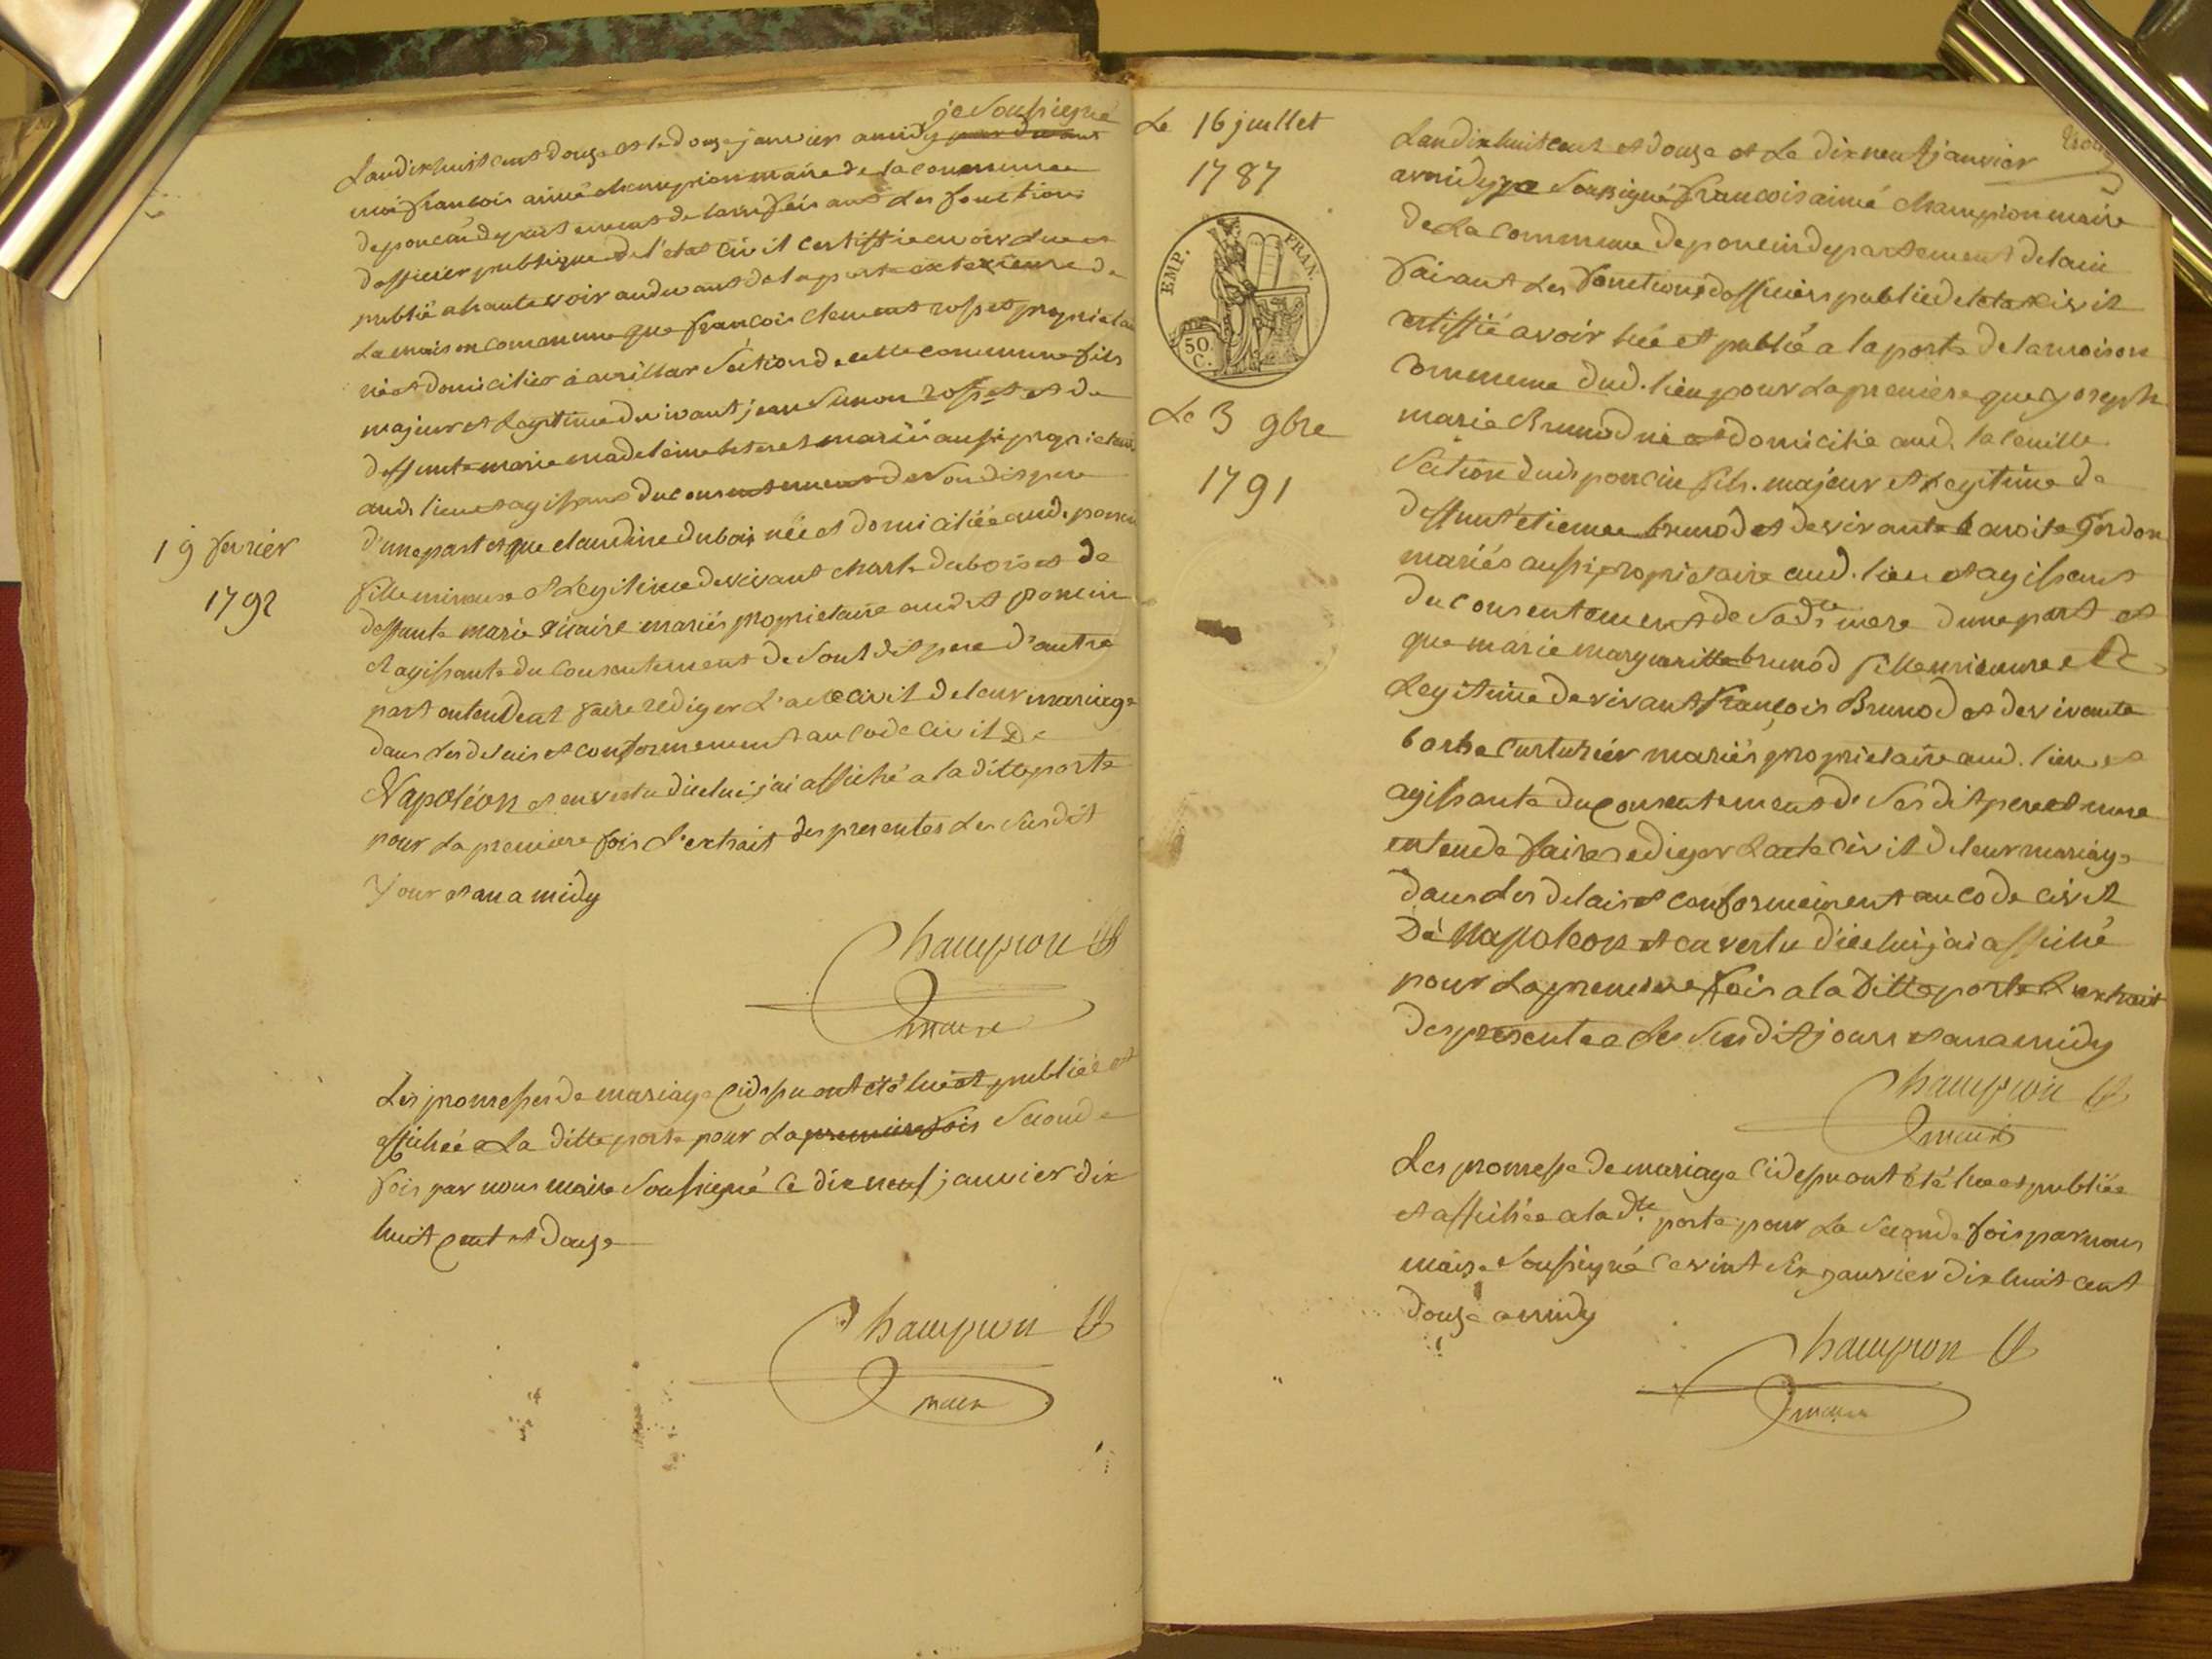 je Soussigné
L'an dix huit cent douze et le douze janvier a midy par devant
moi francois aimé champion maire de la commune
de poncin departement de lain faisant les fonctions
dofficier publique de l'etat civil certiffie avoir lue et
publié a haute voix au devant de la porte exterieure de
la maison commune que francois clement rosset proprietai
né et domicilier à avrillat Section de cette commune fils
majeur et legitime du vivant jean Simon rosset et de
deffunte marie madeleine mariés aussi proprietaire
aud. lieu et agissant du consentement de Son dit pere
d'une part et que claudine dubois née et domiciliée aud. poncin
19 fevrier
1792
fille mineure et Legitime de vivant charle dubois et de
deffunte marie mariés proprietaire audit poncin
et agissante du Consentement de Sont dit pere d'autre
part entendent faire rediger L'acte civil de leur mariage
dans les delais et conformement au Code Civil De
Napoléon et en vertu dicelui j'ai affiché a la ditte porte
pour La premiere fois L'extrait des presentes Les Susdit
Jour et an a midy
Champion
maire
Les promesses de mariage Cidessu ont été lue et publiée et
affichée a La ditte porte pour La premiere fois Seconde
fois par nous maire Soussigné Ce dix neuf janvier dix
huit Cent et douze
Champion
maire
Le 16 juillet
1787
EMP. FRAN.
50 C.
Le 3 9bre
1791
L'an dix huit cent et douze et Le dix neuf janvier
a midy je Soussigné francois aimé champion maire
de La Commune de poncin departement de lain
faisant les fonctions dofficiers public de letat civil
certiffié avoir lue et publié a la porte de la maison
commune dud. lieu pour La premiere que joseph
marie Brunod né et domicilié aud.
Section dud poncin fils majeur et Legitime de
deffunt etienne brunod et de vivante benoite gordon
mariés aussi propriétaire aud. lieu et agissant
du Consentement de Sa dte mere d'une part et
que marie margueritte brunod fille mineure et
Legitime de vivant françois Brunod et de vivante
mariés proprietaire aud. lieu et
agissante du Consentement de Ses dit pere et mere
entende faire rediger L'acte civil de leur mariage
dans Les delais et conformement au code civil
De Napoleon et en vertu d'icelui j'ai affiché
pour La premiere fois a la ditte porte L'extrait
des presentee Les Susdit jours et an a midy
Champion
maire
Les promesse de mariage Cidessu ont été lue et publiée
et affichée a la dte porte pour La Seconde fois par nous
maire Soussigné Ce vint Six janvier dix huit cent
douze a midy
Champion
maire